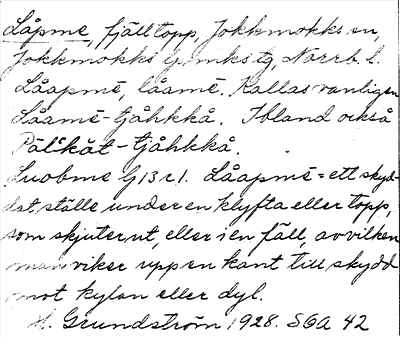 Låpme, fjälltopp, Jokkmokks sn,
Jokkmokks lpmks tg, Norrb. l.
Låapmē, låamē. Kallas vanligen
Låamē-tjåhkkå. Ibland också
Pālkāt-tjåhkkå.
Luobme G 13 r 1. Låapmē = ett skyd-
dat ställe under en klyfta eller topp,
som skjuter ut, eller i en fäll, av vilken
man viker upp en kant till skydd
mot kylan eller dyl.
H. Grundström 1928. SOA 42